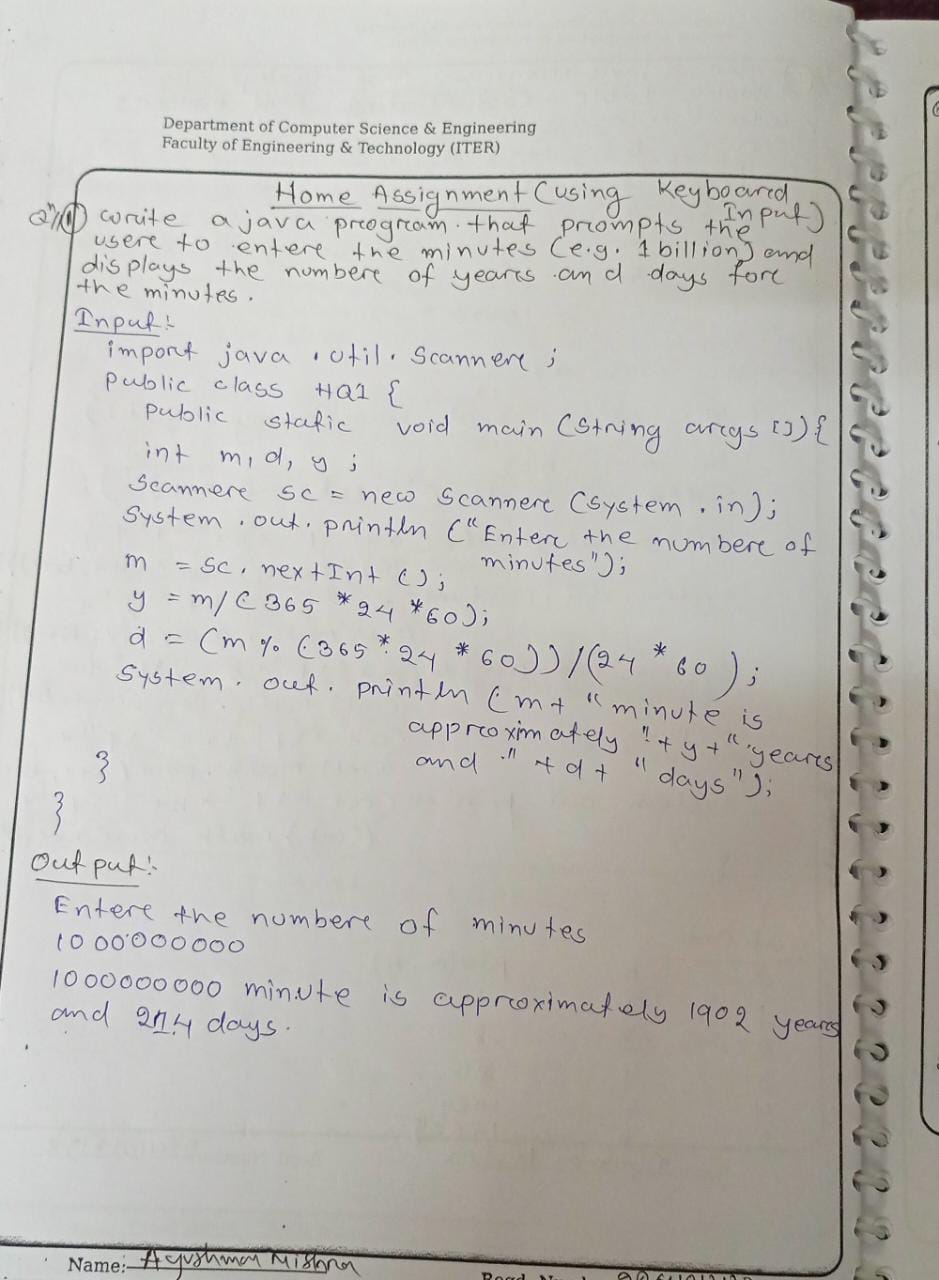 Department of Computer Science & Engineering
Faculty of Engineering & Technology (ITER)
Home Assignment (using Keyboard
Input)
Qⁿ/① write a java program that prompts the
user to enter the minutes (e.g. 1 billion) and
displays the number of years and days for
the minutes.
Input:-
import java . util . Scanner ;
public class HQ1 {
public static void main (String args []) {
int m, d, y ;
Scanner sc = new Scanner (System . in);
System . out . println ("Enter the number of
minutes");
m = sc . nextInt ();
y = m/(365 * 24 * 60);
d = (m % (365 * 24 * 60)) / (24 * 60 ) ;
System . out . println (m+ " minute is
approximately " + y + " years
and " + d + " days");
}
}
Output:-
Enter the number of minutes
1000000000
1000000000 minute is approximately 1902 years
and 214 days.
Name:- Ayushman Mishra